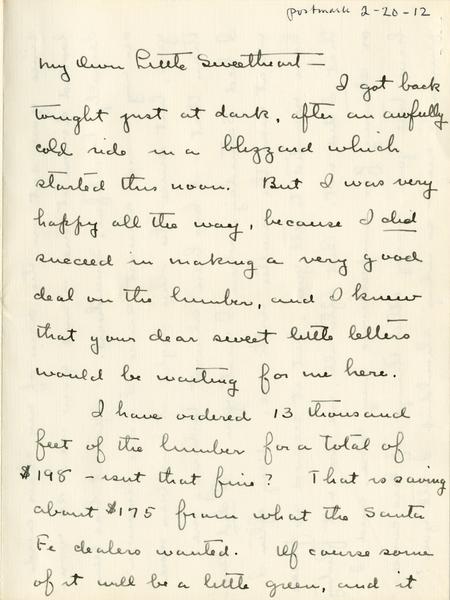 postmark 2-20-12
My Own Little Sweetheart—
I got back
tonight just at dark, after an awfully
cold ride in a blizzard which
started this noon. But I was very
happy all the way, because I did
succeed in making a very good
deal on the lumber, and I knew
that your dear sweet little letters
would be waiting for me here.
I have ordered 13 thousand
feet of the lumber for a total of
$198 - isnt that fine? That is saving
about $175 from what the Santa
Fe dealers wanted. Of course some
of it will be a little green, and it